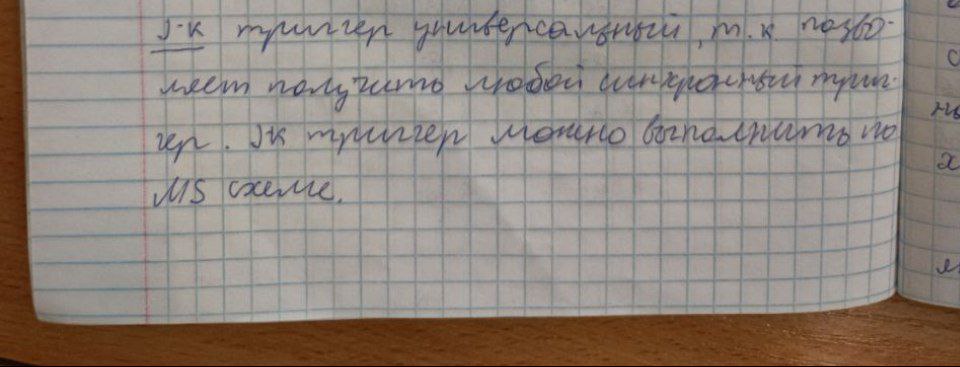 J-K триггер универсальный, т.к. позво-
ляет получить любой синхронный триг-
гер. JK триггер можно выполнить по
MS схеме.